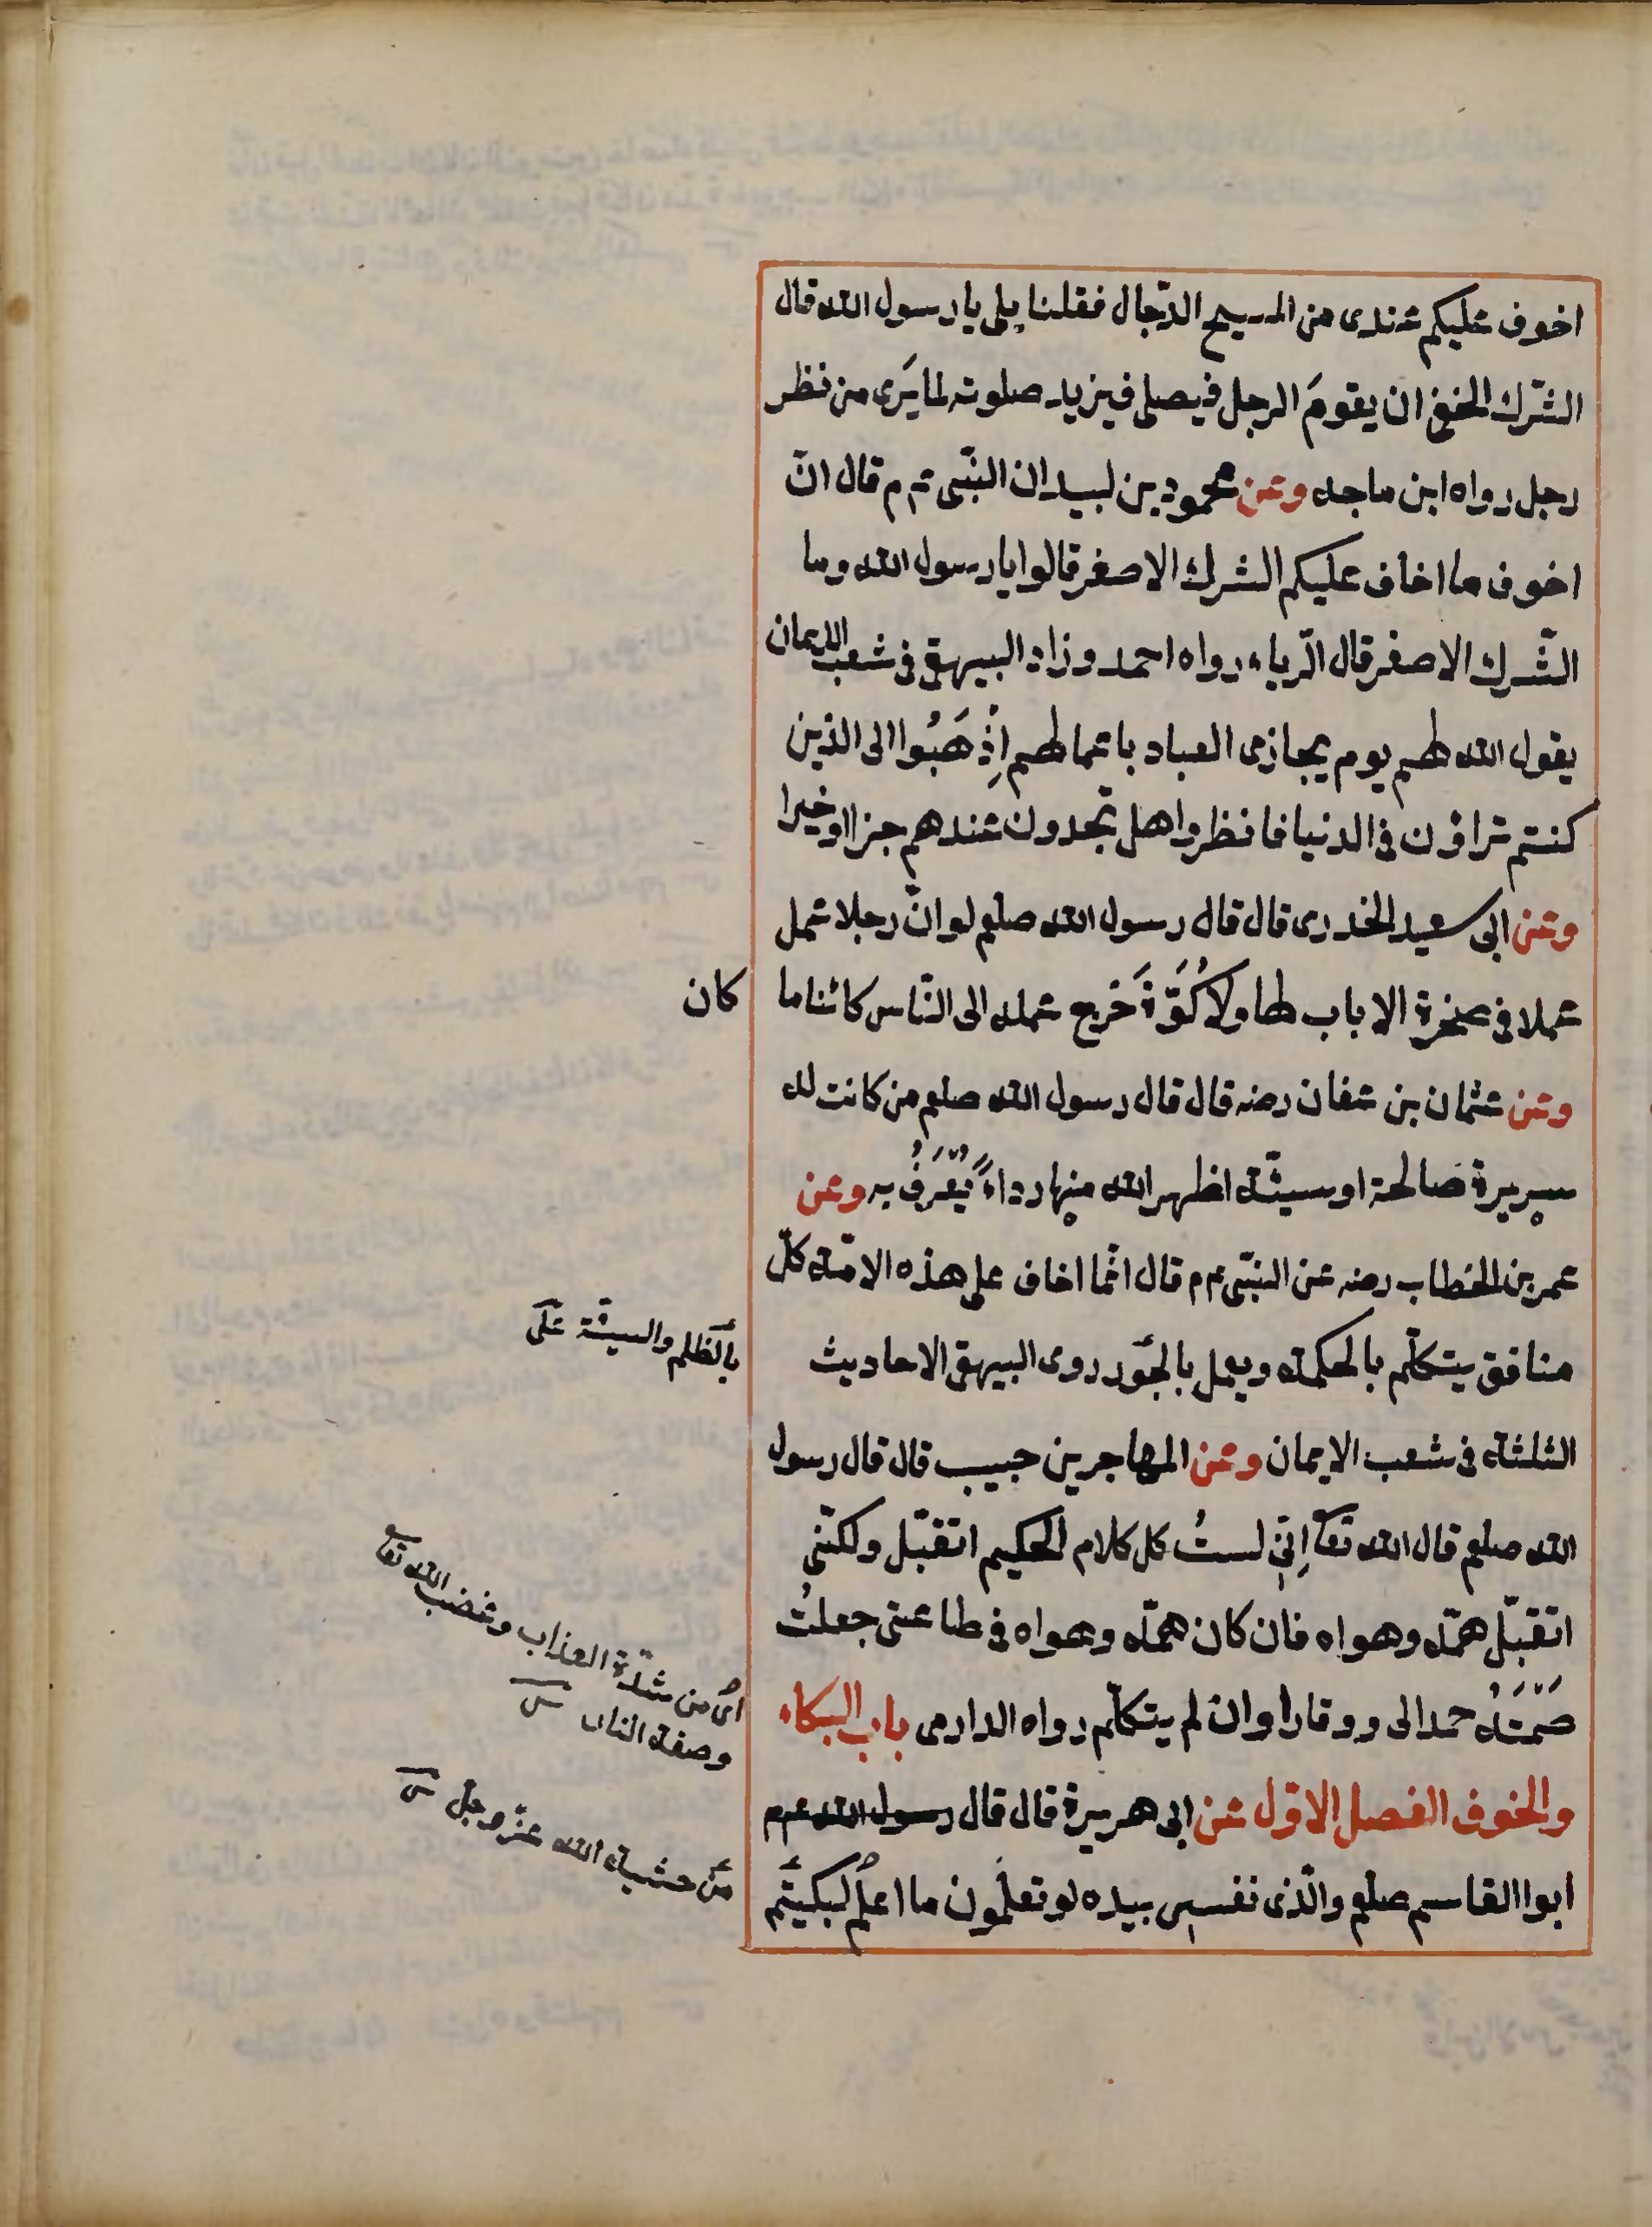 اخوف عليكم عندى من المسيح الدّجال فقلنا بلى يا رسول الله قال
الشّرك الخفىّ ان يقومَ الرجل فيصلى فيزيد صلوته لما يَرى من نظر
رجل رواه ابن ماجه وعن محمود بن لبيد ان النبّى عم م قال انّ
اخوف ما اخاف عليكم الشرك الاصغر قالوا يا رسول الله وما
الشّرك الاصغر قال الّرياء رواه احمد وزاد البيهقى فى شعب الايمان
يقول الله لهم يوم يجازى العباد باعمالهم اِذْهَبُوا الى الذين
كنتم تراؤن فى الدنيا فانظروا هل تجدون عندهم جزاا وخيرا
وعن ابى سعيد الخدرى قال قال رسول الله صلعم لو انّ رجلا عمل
عملا فى صخرة لا باب لها ولا كُوَّةَ خَرج عمله الى النّاس كائنا ما
كان
وعن عثمان بن عفان رضه قال قال رسول الله صلعم من كانت له
سريرة صالحة او سيئّة اظهر الله منها رداءً يُعْرَفُ به وعن
عمر بن الخطاب رضه عن النبّى عم م قال انّما اخاف على هذه الامّة كلّ
منافق يتكلّم بالحكمة ويعمل بالجَور روى البيهقى الاحاديث
بالظلم والسيئّة على
الثلثة فى شعب الايمان وعن المهاجر بن حبيب قال قال رسول
الله صلعم قال الله تعآ اِنّى لستُ كل كلام الحكيم اتقبّل ولكنّى
اتقبّل همّه وهواه فان كان همّه وهواه فى طاعتى جعلتُ
صَمْتَهُ حمدا لى ووقارا وان لم يتكلّم رواه الدارمى باب البكاء
اى من شدّة العذاب وغضب الله تعآ
وصفة النار
والخوف الفصل الاوّل عن ابى هريرة قال قال رسول الله عم م
ابوا القاسم صلعم والّذى نفسى بيده لو تعلَمون ما اعلمُ لبكيتم
من خشية الله عزّ وجلّ